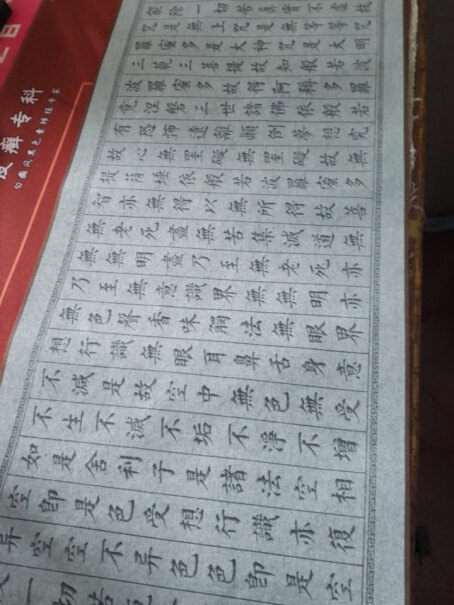 切苦
空空不异色色即是空
空即是色受想行識亦復
如是舍利子是諸法空相
不生不滅不垢不淨不增
不減是故空中無色無受
想行識無眼耳鼻舌身意
無色聲香味觸法無眼界
乃至無意識界無無明亦
無無明盡乃至無老死亦
無老死盡無苦集滅道無
智亦無得以無所得故菩
提薩埵依般若波羅蜜多
故心無罣礙無罣礙故無
有恐怖遠離顛倒夢想究
竟涅槃三世諸佛依般若
波羅蜜多故得阿耨多羅
三藐三菩提故知般若波
羅蜜多是大神咒是大明
咒是無上咒是無等等咒
能除一切苦真實不虛故
癣专科
白癜风黑色素种植专家